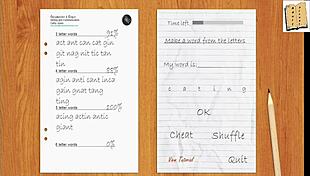 3 letter words 92%
act ant can cat gin
git nag nit tic tan
tin
4 letter words 88%
agin anti cant inca
gain gnat tang
ting
5 letter words 100%
acing actin antic
giant
6 letter words 0%
Time left
Make a word from the letters
My word is:
c a t i n g
OK
Cheat Shuffle
Quit